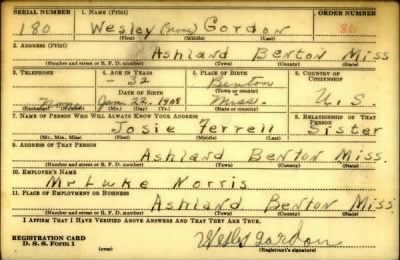 SERIAL NUMBER 1. NAME (Print) ORDER NUMBER
180 Wesley (none) Gordon 86
(First) (Middle) (Last)
2. ADDRESS (Print)
Ashland Benton Miss
(Number and street or R. F. D. number) (Town) (County) (State)
3. TELEPHONE 4. AGE IN YEARS 5. PLACE OF BIRTH 6. COUNTRY OF CITIZENSHIP
32 Benton
DATE OF BIRTH (Town or county)
None Jan. 22, 1908 Miss. U. S.
(Exchange) (Number) (Mo.) (Day) (Yr.) (State or country)
7. NAME OF PERSON WHO WILL ALWAYS KNOW YOUR ADDRESS 8. RELATIONSHIP OF THAT PERSON
Josie Ferrell Sister
(Mr., Mrs., Miss) (First) (Middle) (Last)
9. ADDRESS OF THAT PERSON
Ashland Benton Miss.
(Number and street or R. F. D. number) (Town) (County) (State)
10. EMPLOYER'S NAME
Mr Luke Norris
11. PLACE OF EMPLOYMENT OR BUSINESS
Ashland Benton Miss
(Number and street or R. F. D. number) (Town) (County) (State)
I AFFIRM THAT I HAVE VERIFIED ABOVE ANSWERS AND THAT THEY ARE TRUE.
REGISTRATION CARD
D. S. S. Form 1
Wesley Gordon
(Registrant's signature)